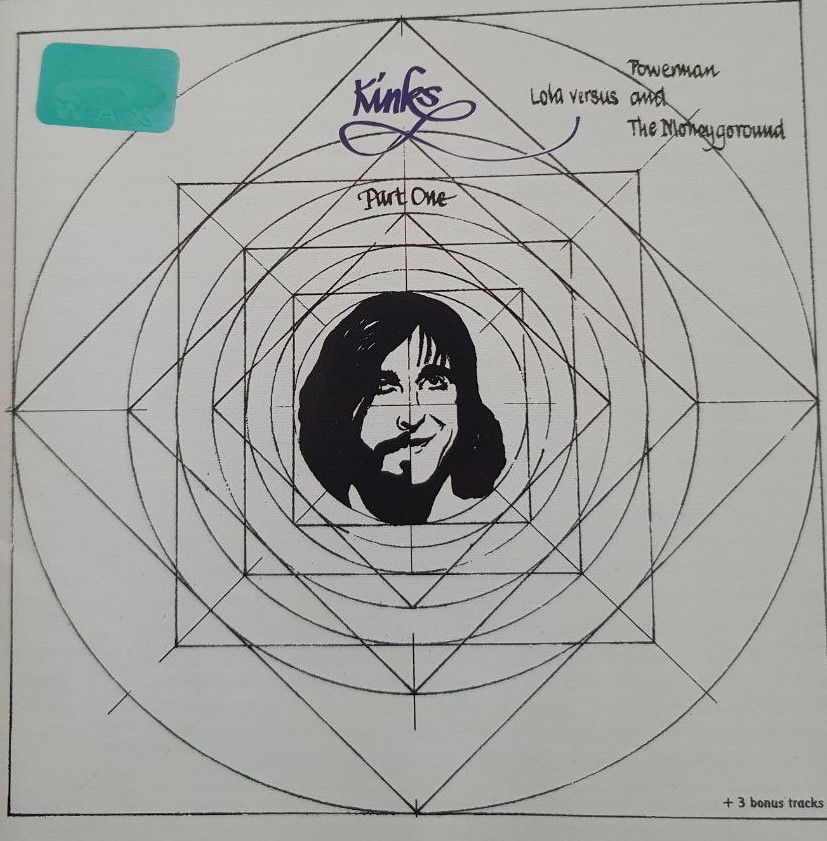 WAX
Kinks
Lola versus
Powerman
and
The Moneygoround
Part One
+ 3 bonus tracks